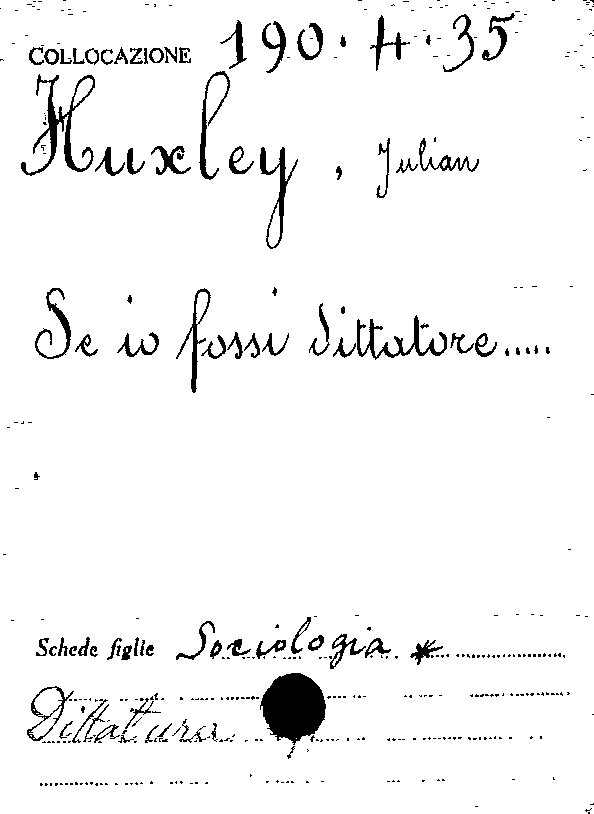 COLLOCAZIONE 190.4.35
Huxley, Julian
Se io fossi dittatore.....
Schede figlie Sociologia *
Dittatura